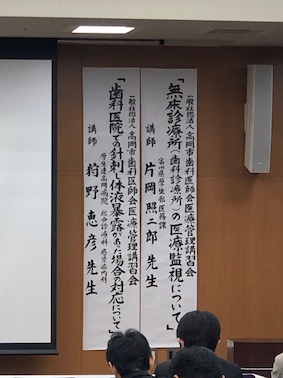 一般社団法人高岡市歯科医師会医療管理講習会
「無床診療所(歯科診療所)の医療監視について」
富山県厚生部医務課
講師 片岡照二郎 先生
一般社団法人高岡市歯科医師会医療管理講習会
「歯科医院での針刺し体液暴露があった場合の対応について」
厚生連高岡病院 総合診療科・感染症内科
講師 狩野惠彦 先生